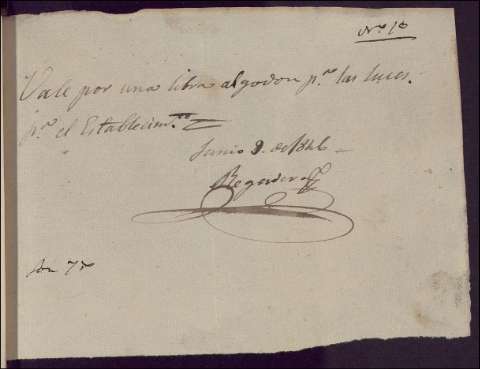 Nº 10
Vale por una libra algodon pª las luces
pª el Establecimto
Junio 8. de 1846
Regader
Son 7 rs